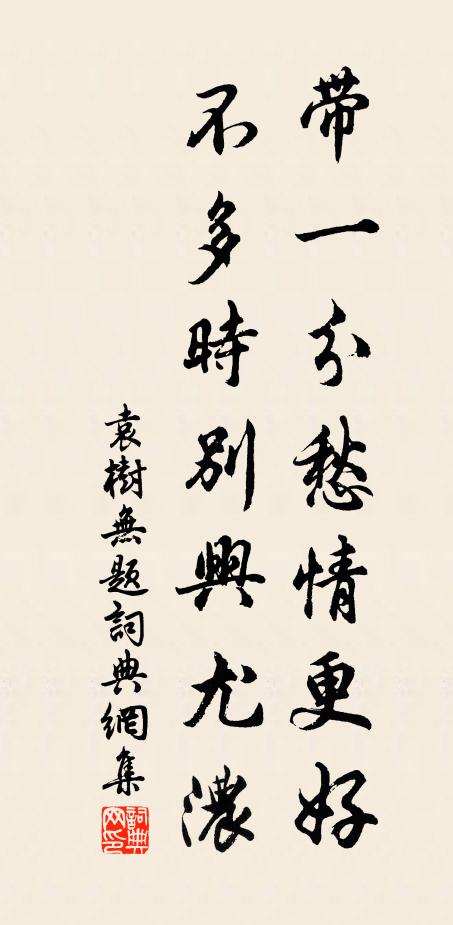 带一分愁情更好
不多時别興尤濃
袁樹無題詞典網集
詞典网印